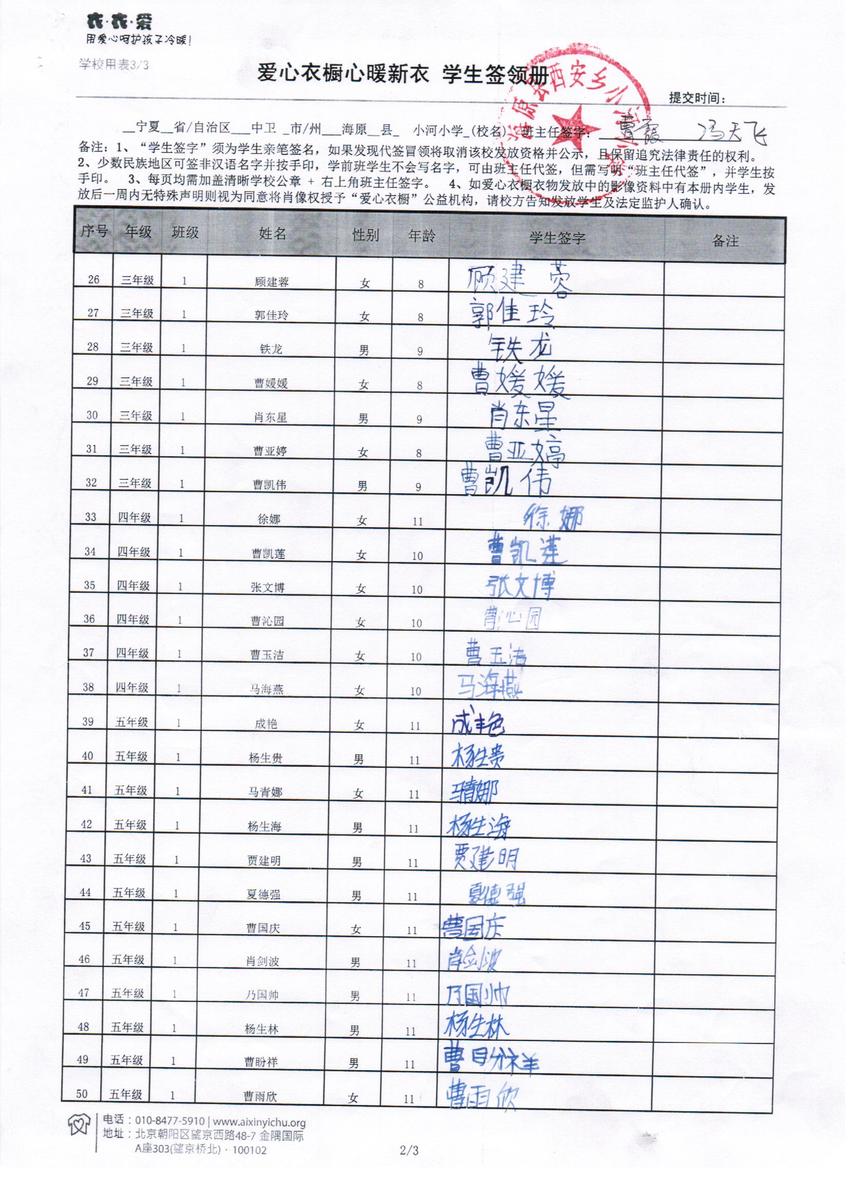 衣·衣·爱
用爱心呵护孩子冷暖!
学校用表3/3
爱心衣橱心暖新衣 学生签领册
提交时间:
__宁夏__省/自治区___中卫 _市/州___海原__县_ 小河小学_(校名) 班主任签字: 曹霞 冯天飞
备注: 1、“学生签字”须为学生亲笔签名,如果发现代签冒领将取消该校发放资格并公示,且保留追究法律责任的权利。
2、少数民族地区可签非汉语名字并按手印,学前班学生不会写名字,可由班主任代签,但需写明“班主任代签”,并学生按
手印。 3、每页均需加盖清晰学校公章 + 右上角班主任签字。 4、如爱心衣橱衣物发放中的影像资料中有本册内学生,发
放后一周内无特殊声明则视为同意将肖像权授予“爱心衣橱”公益机构,请校方告知发放学生及法定监护人确认。
序号 年级 班级 姓名 性别 年龄 学生签字 备注
26 三年级 1 顾建蓉 女 8 顾建蓉
27 三年级 1 郭佳玲 女 8 郭佳玲
28 三年级 1 铁龙 男 9 铁龙
29 三年级 1 曹媛媛 女 8 曹媛媛
30 三年级 1 肖东星 男 9 肖东星
31 三年级 1 曹亚婷 女 8 曹亚婷
32 三年级 1 曹凯伟 男 9 曹凯伟
33 四年级 1 徐娜 女 11 徐娜
34 四年级 1 曹凯莲 女 10 曹凯莲
35 四年级 1 张文博 女 10 张文博
36 四年级 1 曹沁园 女 10 曹沁园
37 四年级 1 曹玉洁 女 10 曹玉洁
38 四年级 1 马海燕 女 10 马海燕
39 五年级 1 成艳 女 11 成艳
40 五年级 1 杨生贵 男 11 杨生贵
41 五年级 1 马青娜 女 11 马青娜
42 五年级 1 杨生海 男 11 杨生海
43 五年级 1 贾建明 男 11 贾建明
44 五年级 1 夏德强 男 11 夏德强
45 五年级 1 曹国庆 女 11 曹国庆
46 五年级 1 肖剑波 男 11 肖剑波
47 五年级 1 乃国帅 男 11 乃国帅
48 五年级 1 杨生林 男 11 杨生林
49 五年级 1 曹盼祥 男 11 曹盼祥
50 五年级 1 曹雨欣 女 11 曹雨欣
电话: 010-8477-5910 | www.aixinyichu.org
地址: 北京朝阳区望京西路48-7 金隅国际
A座303(望京桥北)·100102
2/3